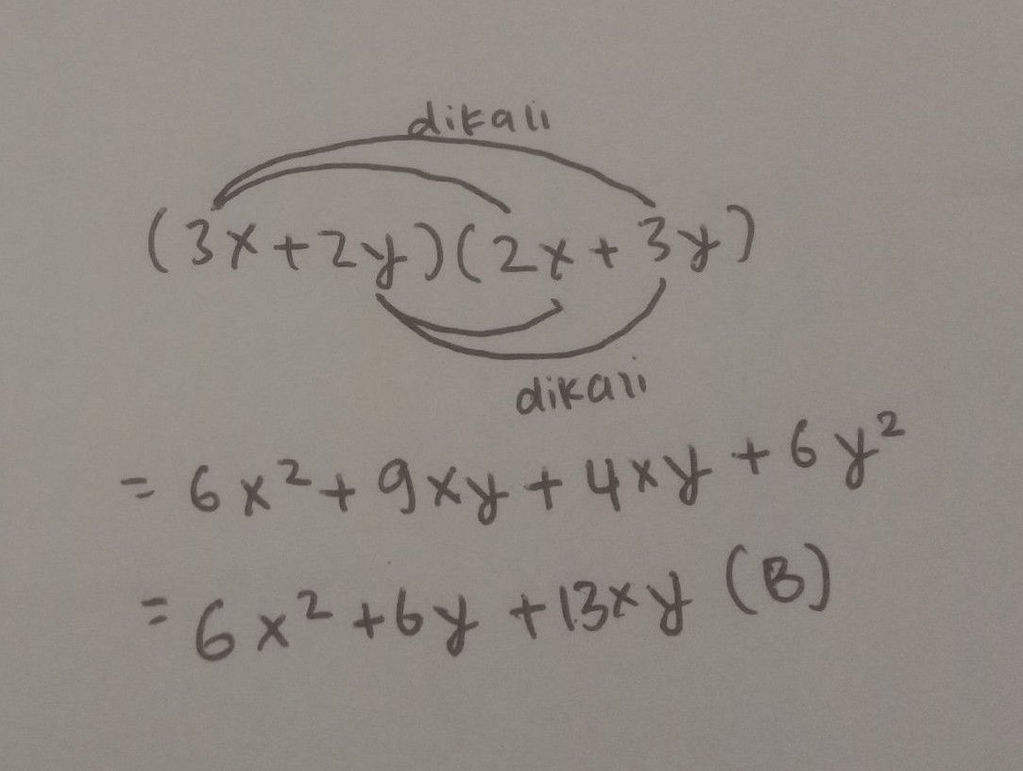 dikali
(3x+2y)(2x+3y)
dikali
= 6x²+9xy+4xy+6y²
= 6x²+6y+13xy (B)